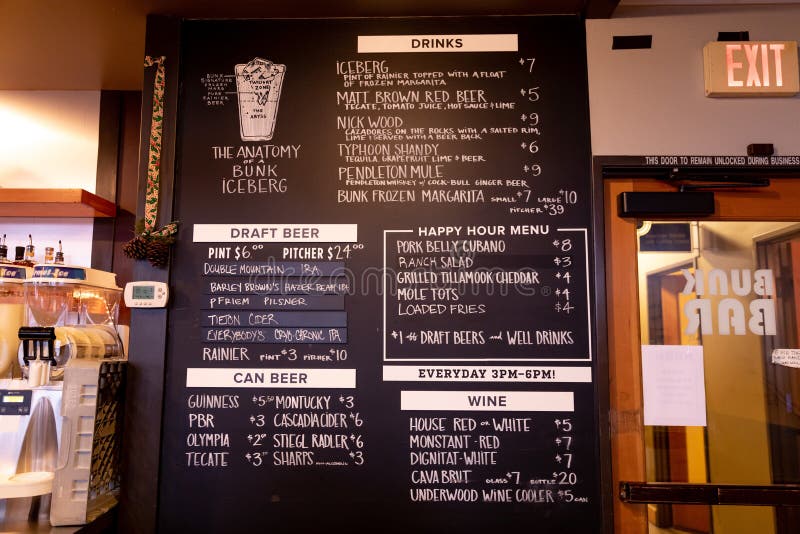 DRINKS
ICEBERG $7
PINT OF RAINIER TOPPED WITH A FLOAT
OF FROZEN MARGARITA
MATT BROWN RED BEER $5
TECATE, TOMATO JUICE, HOT SAUCE & LIME
NICK WOOD $9
CAZADORES ON THE ROCKS WITH A SALTED RIM,
LIME & SERVED WITH A BEER BACK
TYPHOON SHANDY $6
TEQUILA GRAPEFRUIT LIME & BEER
PENDLETON MULE $9
PENDLETON WHISKEY W/ COCK-BULL GINGER BEER
BUNK FROZEN MARGARITA SMALL $7 LARGE $10
PITCHER $39
BUNK
SIGNATURE
FROZEN
MARG
PURE
RAINIER
BEER
TWILIGHT
ZONE
THE ABYSS
THE ANATOMY
OF A
BUNK
ICEBERG
DRAFT BEER
PINT $6.00 PITCHER $24.00
DOUBLE MOUNTAIN IRA
BARLEY BROWN'S HAZER BEAM IPA
PFRIEM PILSNER
CIDER
EVERYBODY'S CRYO CHRONIC IPA
RAINIER PINT $3 PITCHER $10
CAN BEER
GUINNESS $5.50 MONTUCKY $3
PBR $3 CASCADIA CIDER $6
OLYMPIA $2 STIEGL RADLER $6
TECATE $3 SHARPS NON-ALCOHOLIC
HAPPY HOUR MENU
PORK BELLY CUBANO $8
RANCH SALAD $3
GRILLED TILLAMOOK CHEDDAR $4
MOLE TOTS $4
LOADED FRIES $4
$1 off DRAFT BEERS and WELL DRINKS
EVERYDAY 3PM-6PM!
WINE
HOUSE RED or WHITE $5
MONSTANT-RED $7
DIGNITAT-WHITE $7
CAVA BRUT GLASS $7 BOTTLE $20
UNDERWOOD WINE COOLER $5 CAN
EXIT
THIS DOOR TO REMAIN UNLOCKED DURING BUSINESS
BUNK
BAR
dreamstime